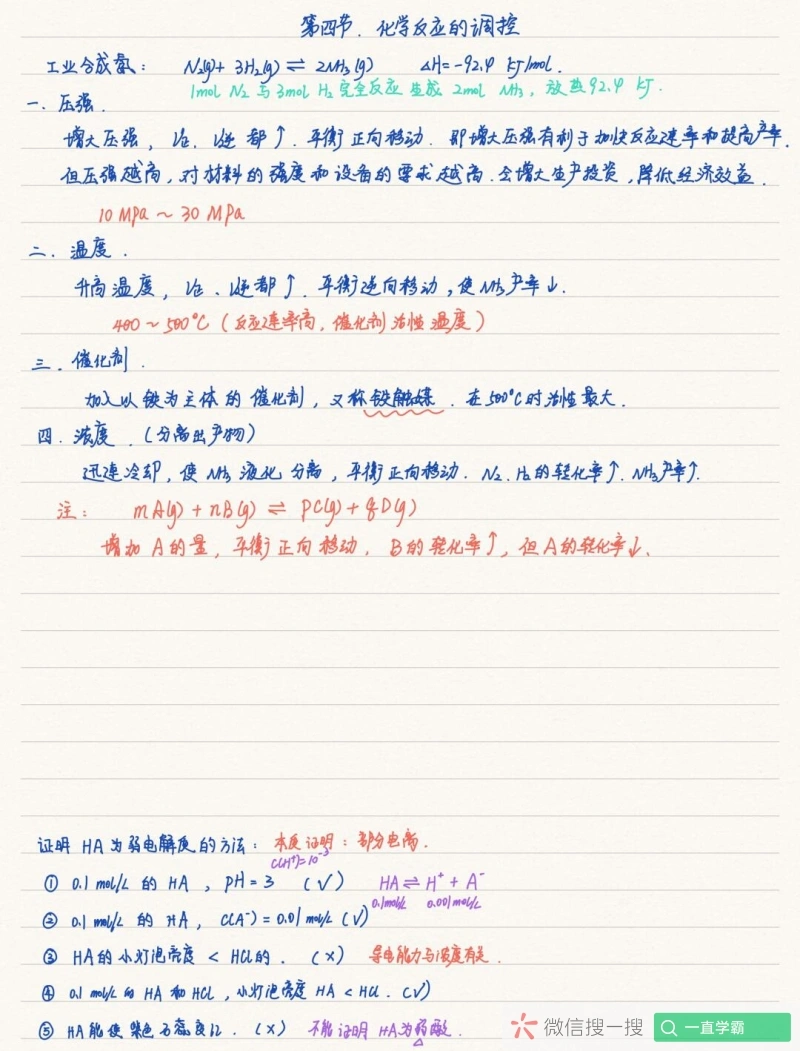 第四节. 化学反应的调控
工业合成氨: N₂(g)+ 3H₂(g) ⇌ 2NH₃(g) ΔH=-92.4 kJ/mol.
1mol N₂ 与 3mol H₂ 完全反应 生成 2mol NH₃, 放热 92.4 kJ.
一. 压强.
增大压强, V正. V逆 都↑. 平衡正向移动. 即增大压强有利于加快反应速率和提高产率.
但压强越高, 对材料的强度和设备的要求越高. 会增大生产投资, 降低经济效益.
10 MPa ~ 30 MPa
二. 温度.
升高温度, V正、V逆都↑. 平衡逆向移动, 使NH₃产率↓.
400 ~ 500°C (反应速率高, 催化剂活性温度)
三. 催化剂.
加入以铁为主体的催化剂, 又称铁触媒. 在500°C时活性最大.
四. 浓度. (分离出产物)
迅速冷却, 使NH₃液化分离, 平衡正向移动. N₂. H₂的转化率↑. NH₃产率↑.
注: mA(g) + nB(g) ⇌ pC(g) + qD(g)
增加A的量, 平衡正向移动. B的转化率↑, 但A的转化率↓.
证明 HA 为弱电解质的方法: 本质证明: 部分电离.
C(H⁺)=10⁻³
① 0.1 mol/L 的 HA, pH=3 (√) HA ⇌ H⁺ + A⁻
0.1mol/L 0.001mol/L
② 0.1 mol/L 的 HA, C(A⁻)=0.01 mol/L (√)
③ HA的小灯泡亮度 < HCl的. (×) 导电能力与浓度有关.
④ 0.1 mol/L的 HA 和 HCl, 小灯泡亮度 HA < HCl. (√)
⑤ HA能使紫色石蕊变红. (×) 不能证明 HA为弱酸.
微信搜一搜 一直学霸